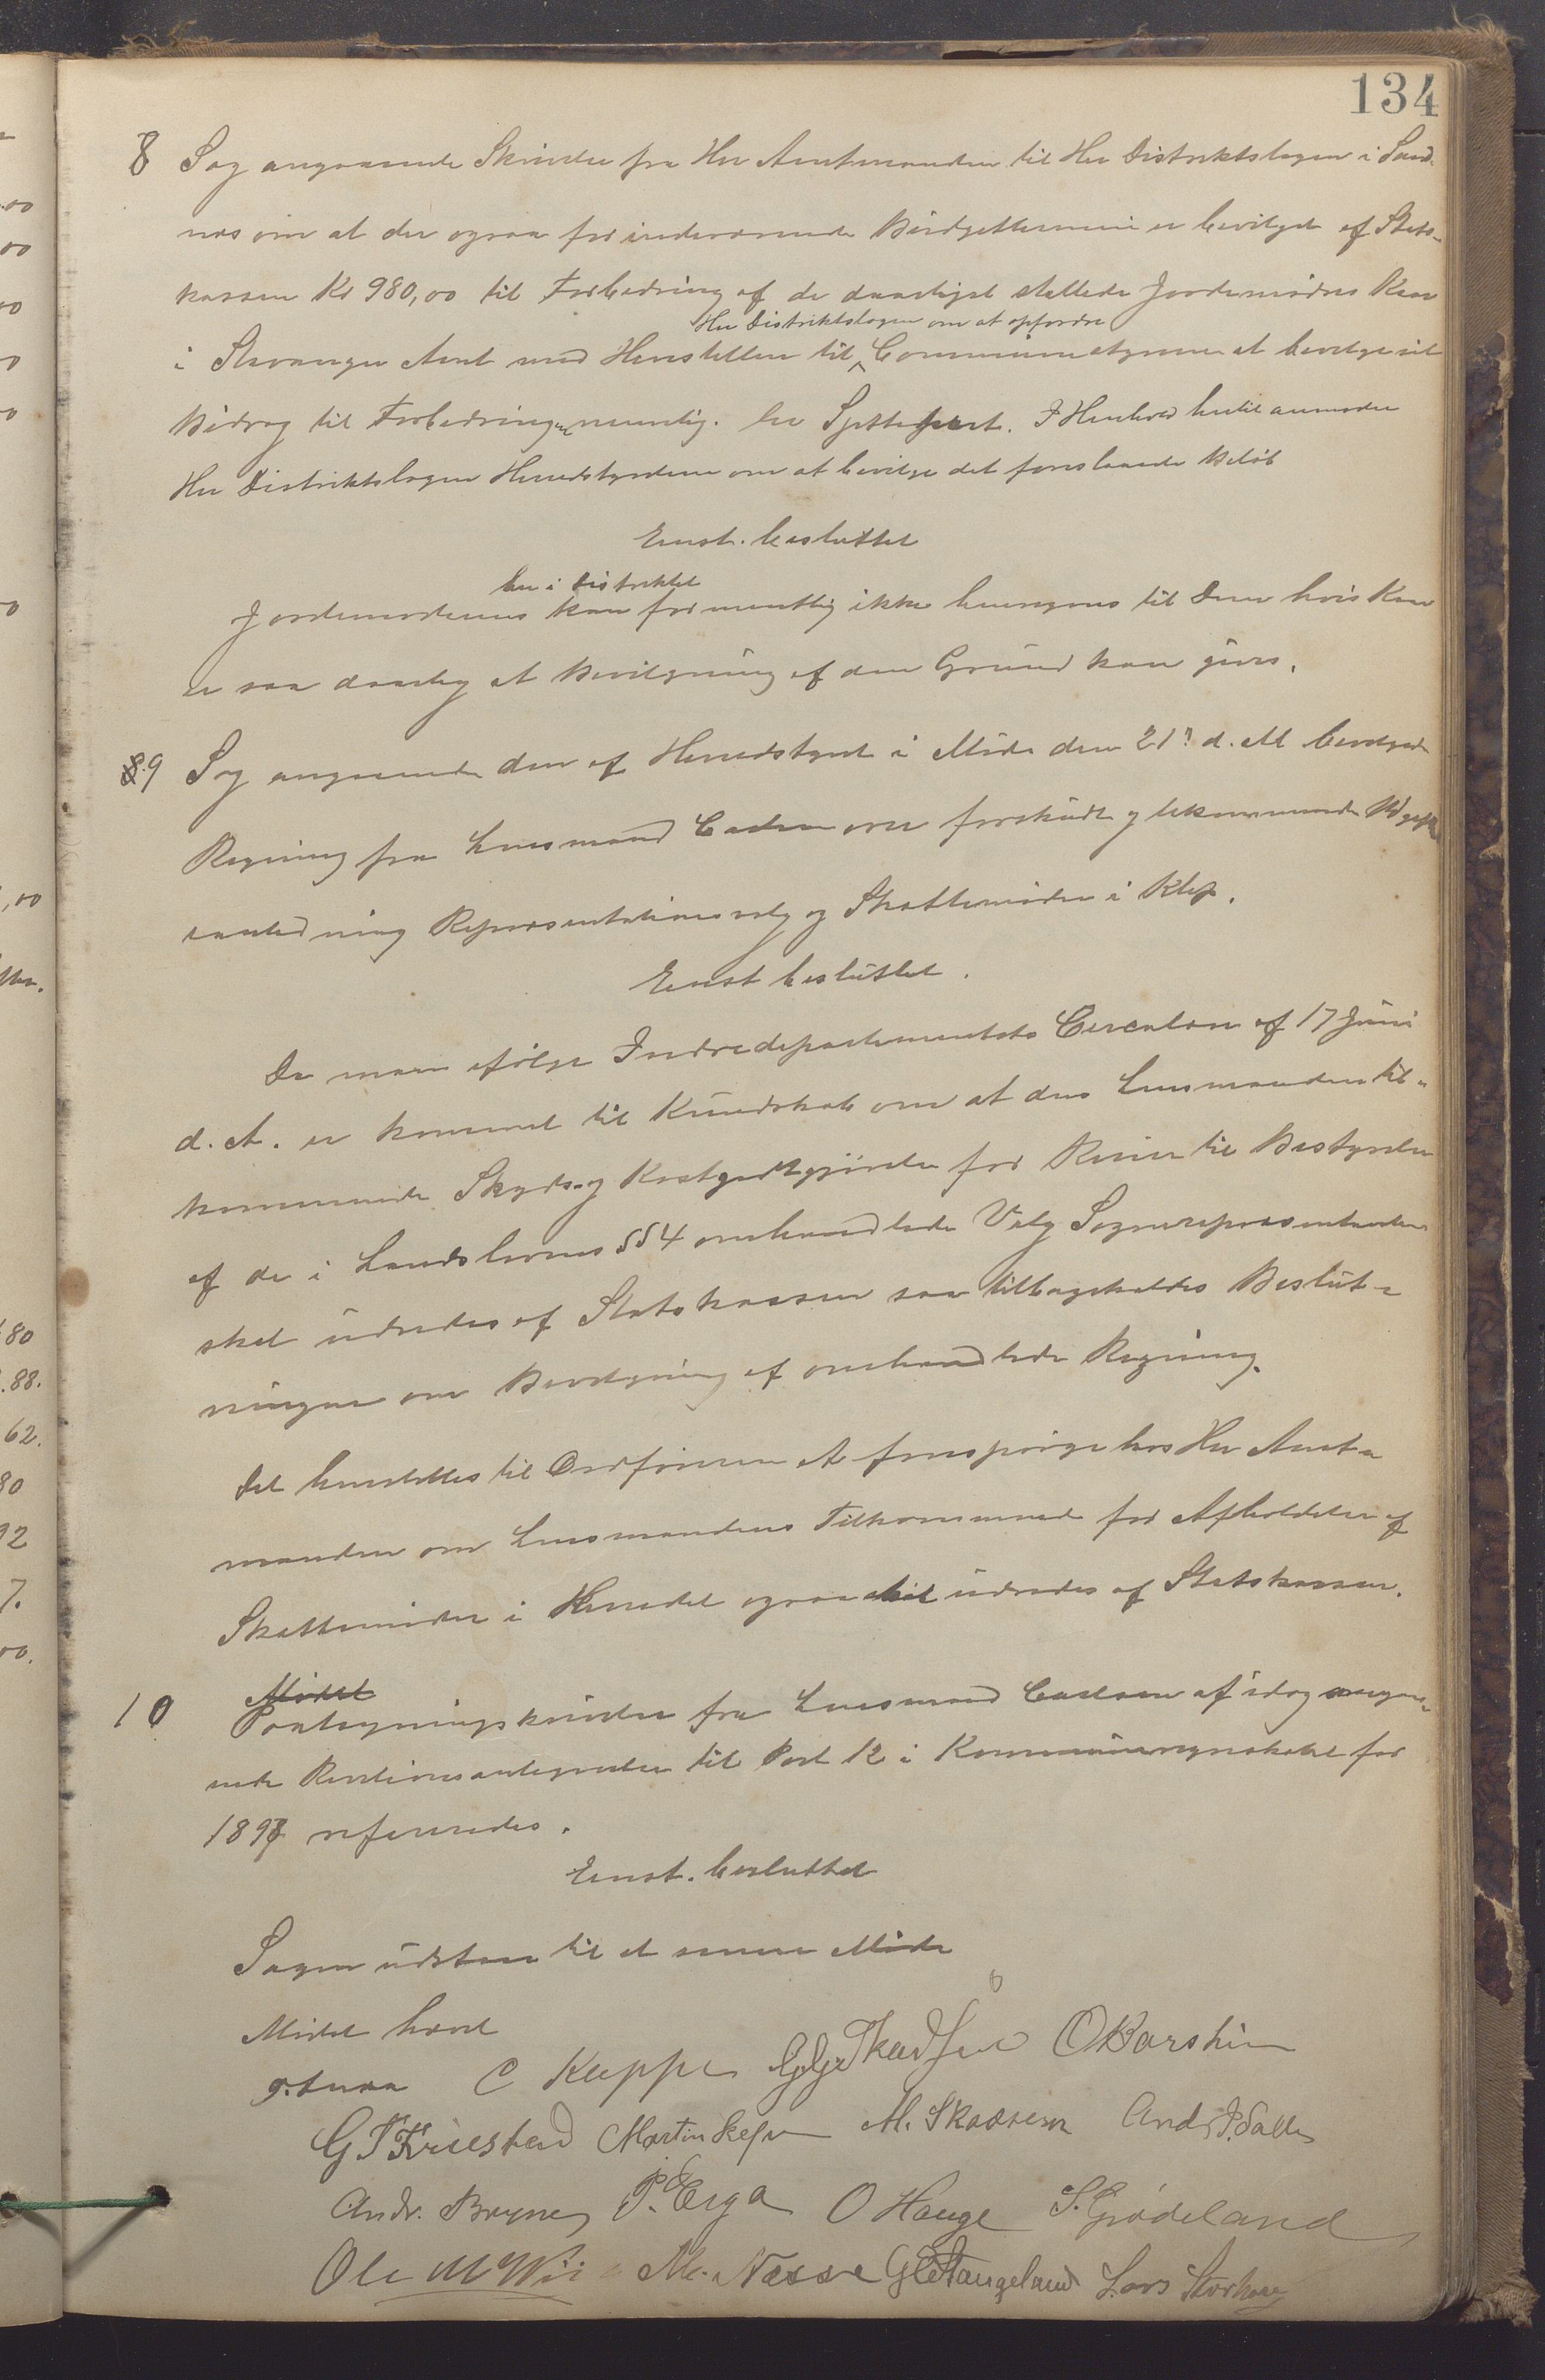 134
8 Sag angaaende Skrivelse fra Her Amtmanden til Her Distriktslægen i Sand-
næs om at der ogsaa for indeværende Budgettermin er bevilget af Stats-
kassen Kr 980,00 til Forbedring af de daarligst stillede Jordemødres Kaar
Her Distriktslægen om at opfordre
i Stavanger Amt med Henstillen til Communestyrerne at bevilge sit
Bidrag til Forbedringen nemlig. I Henhold hertil anmoder
Her Distriktslægen Herredstyrelsen om at bevilge det foreslaaede Beløb
Enst. besluttet
her i Distriktet
Jordemoderens kan formentlig ikke henregnes til Dem hvis Kaar
er saa daarlig at Bevilgning af den Grund kan gives.
8.9 Sag angaaende den af Herredstyret i Møde den 21? d. M bevilgede
Regning fra Lensmand Carlsen over forskudt og tilkommende Udgifter
i anledning Repræsentationsvalg og Skattemøder i Klep.
Enst besluttet.
Da man ifølge Indredepartementets Circulære af 17 Juni
d. A. er kommet til Kundskab om at den Lensmanden til-
kommende Skyds og Kostgodtgjørelse for Reiser til Bestyrelse
af de i Landslovens §§4 omhandlede Valg Sognerepræsentanter
skal udredes af Statskassen saa tilbagekaldes Beslut-
ningen om Bevilgning af omhandlede Regning.
Det henstilles til Ordføreren at forespørge hos Her Amt-
manden om Lensmandens Tilkommende for Afholdelse af
Skattemøder i Herredet ogsaa skal udredes af Statskassen.
Mødet
10 Paategningsskrivelse fra Lensmand Carlsen af idag angaa-
ende Revisionsantegnelse til Post 12 i Kommuneregnskabet for
1897 refereredes.
Enst. besluttet
Sagen udstaar til et senere Møde
Mødet hævet
G. Tunem C Kleppe OKarshim
G T Friestad Martin Skefn M. Skadsem Andr. J. Salte
Andr. Bryne P. Erga O Hauge S. Grødeland
Ole M Wii M. Næsse G E Stangeland Lars Storhaug